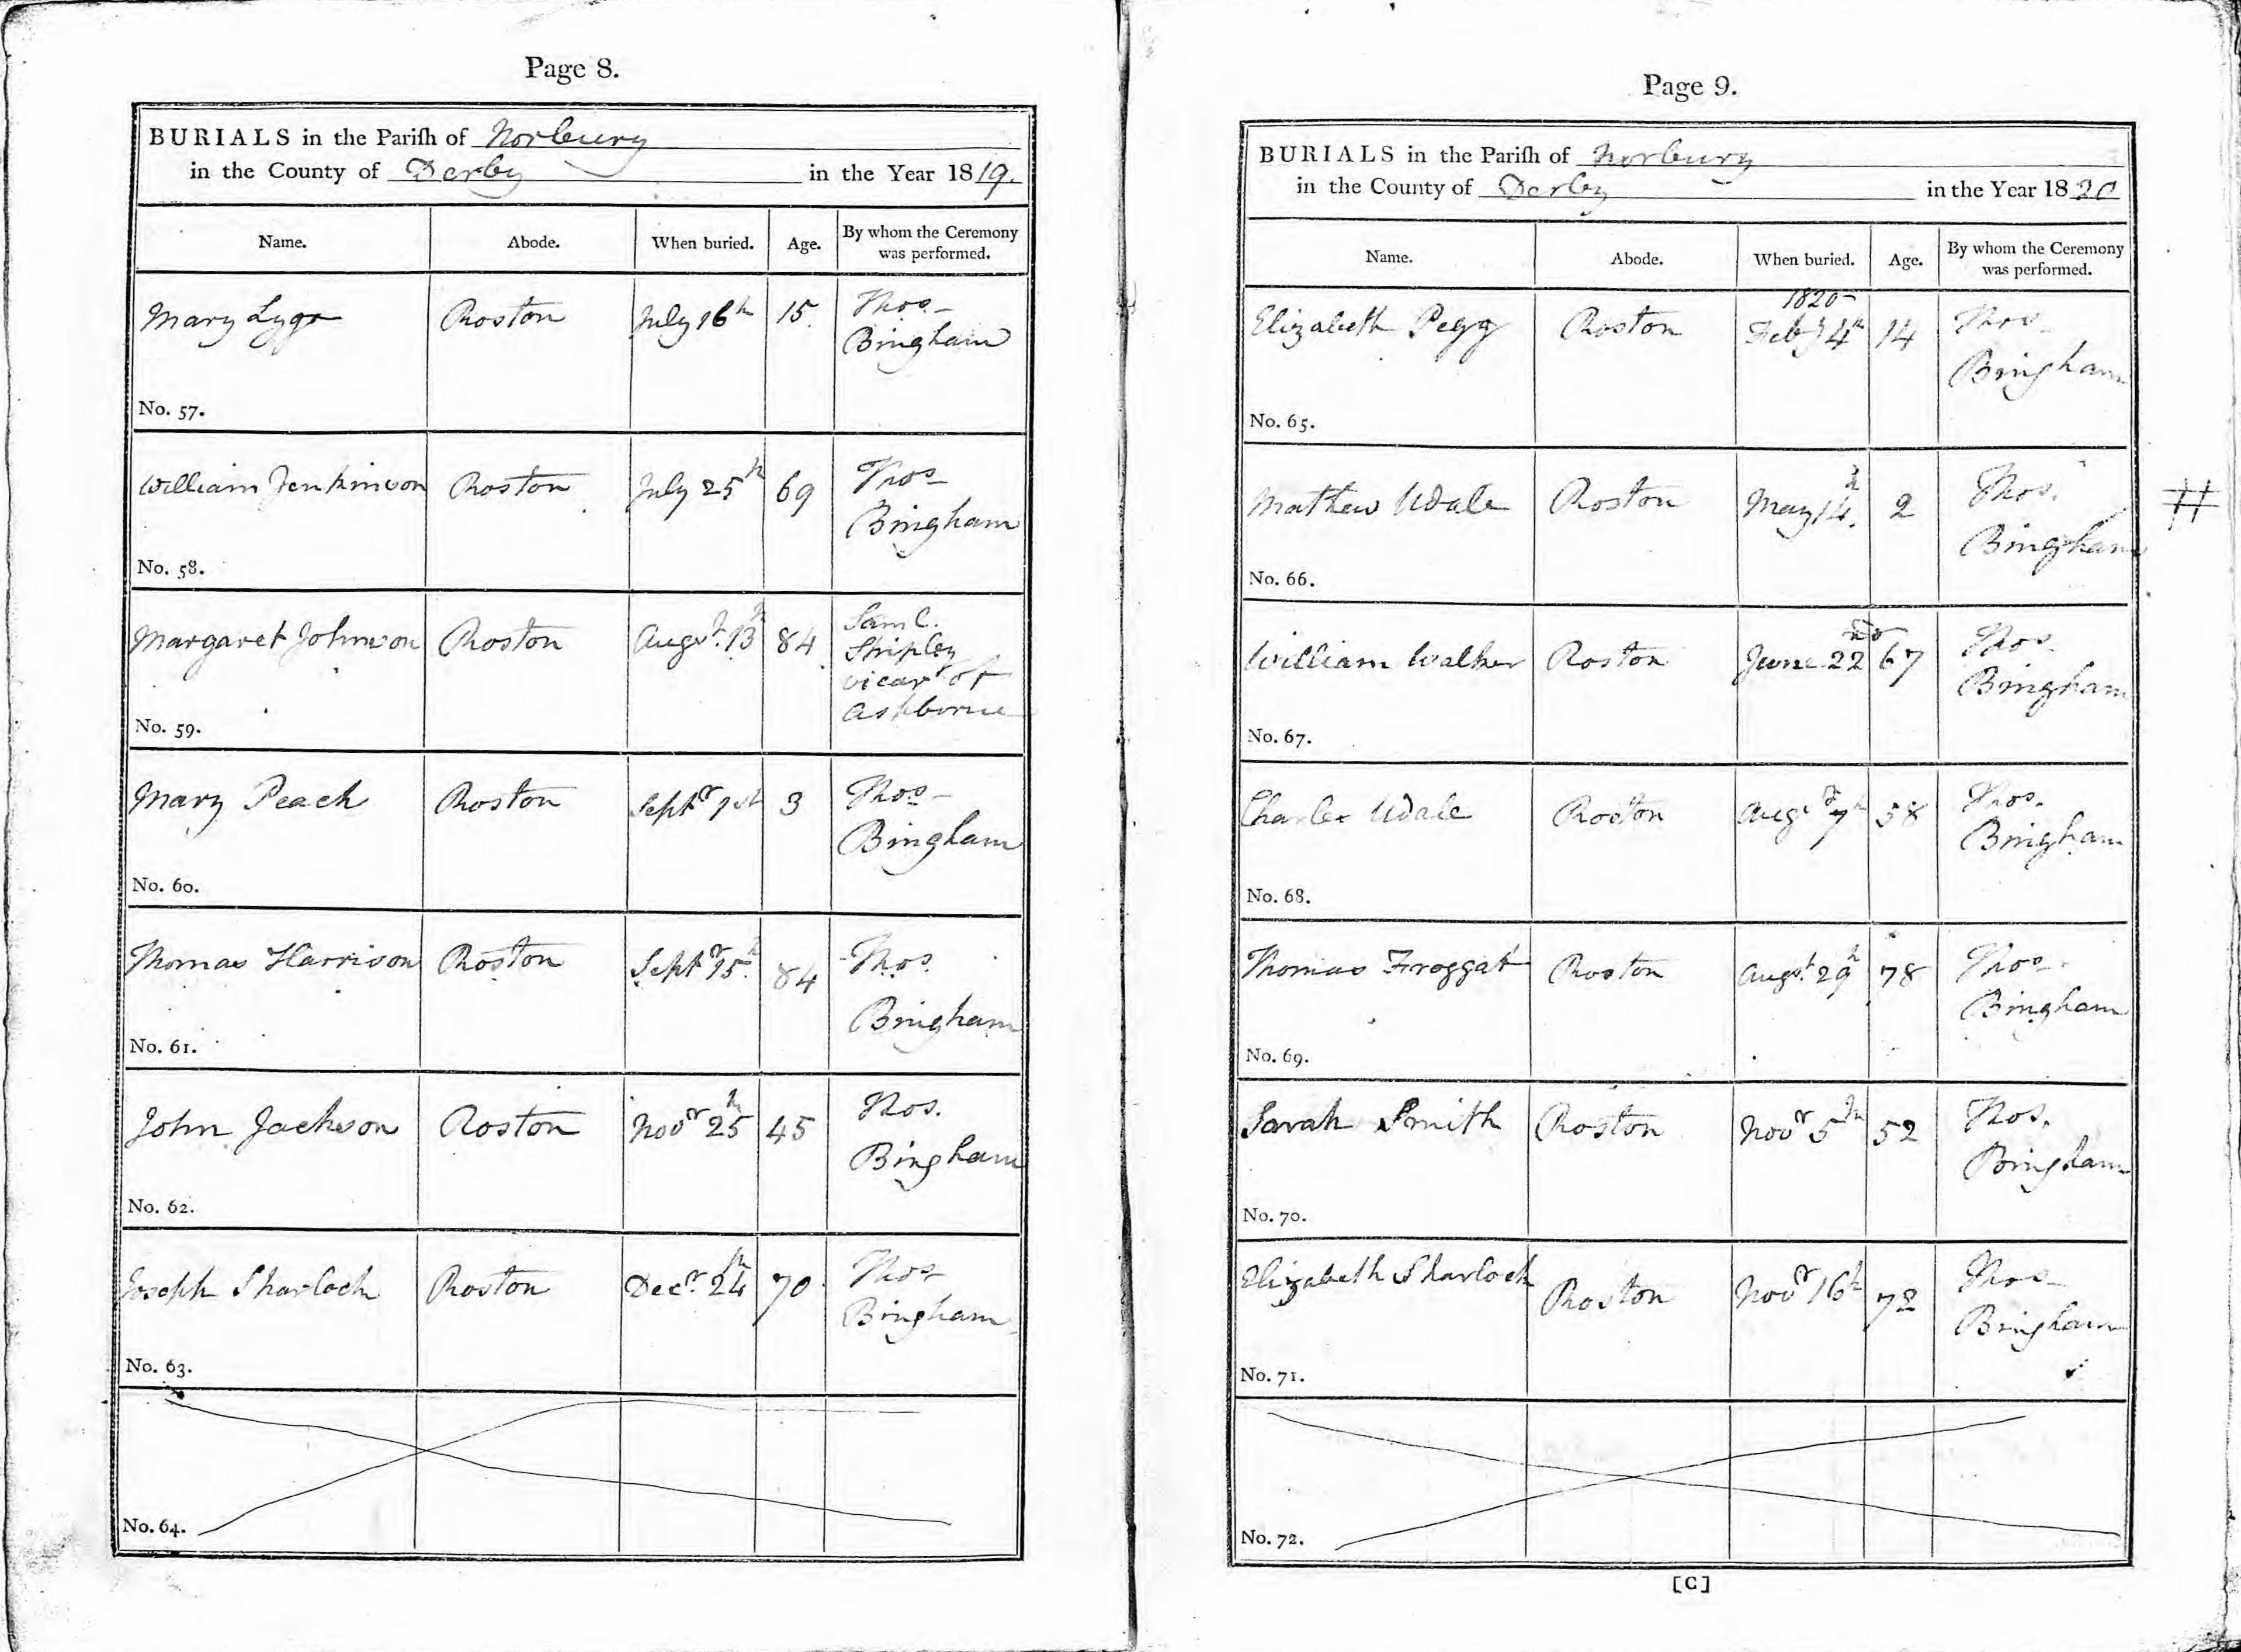 Page 8.
BURIALS in the Parish of Norbury
in the County of Derby in the Year 1819.
Name. Abode. When buried. Age. By whom the Ceremony was performed.
Mary Lygo Roston July 16th 15. Thos. Bingham
No. 57.
William Jenkinson Roston July 25th 69 Thos Bingham
No. 58.
Margaret Johnson Roston Augst. 13th 84 Sam C. Shipley vicar of Ashborne
No. 59.
Mary Peach Roston Septr 1st 3 Thos Bingham
No. 60.
Thomas Harrison Roston Septr 15th 84 Thos. Bingham
No. 61.
John Jackson Roston Novr 25th 45 Thos. Bingham
No. 62.
Joseph Sharloch Roston Decr. 24th 70 Thos Bingham
No. 63.
No. 64.
Page 9.
BURIALS in the Parish of Norbury
in the County of Derby in the Year 1820
Name. Abode. When buried. Age. By whom the Ceremony was performed.
1820
Elizabeth Pegg Roston Feby 4th 14 Thos Bingham
No. 65.
Mathew Udale Roston May 14th. 2 Thos. Bingham
#
No. 66.
William Walker Roston June 22nd 67 Thos. Bingham
No. 67.
Charles Udale Roston Augst 7th 58 Thos. Bingham
No. 68.
Thomas Froggatt Roston Augst. 29th 78 Thos. Bingham
No. 69.
Sarah Smith Roston Novr 5th 52 Thos. Bingham
No. 70.
Elizabeth Sharloch Roston Novr 16th 72 Thos Bingham
No. 71.
No. 72.
[C]